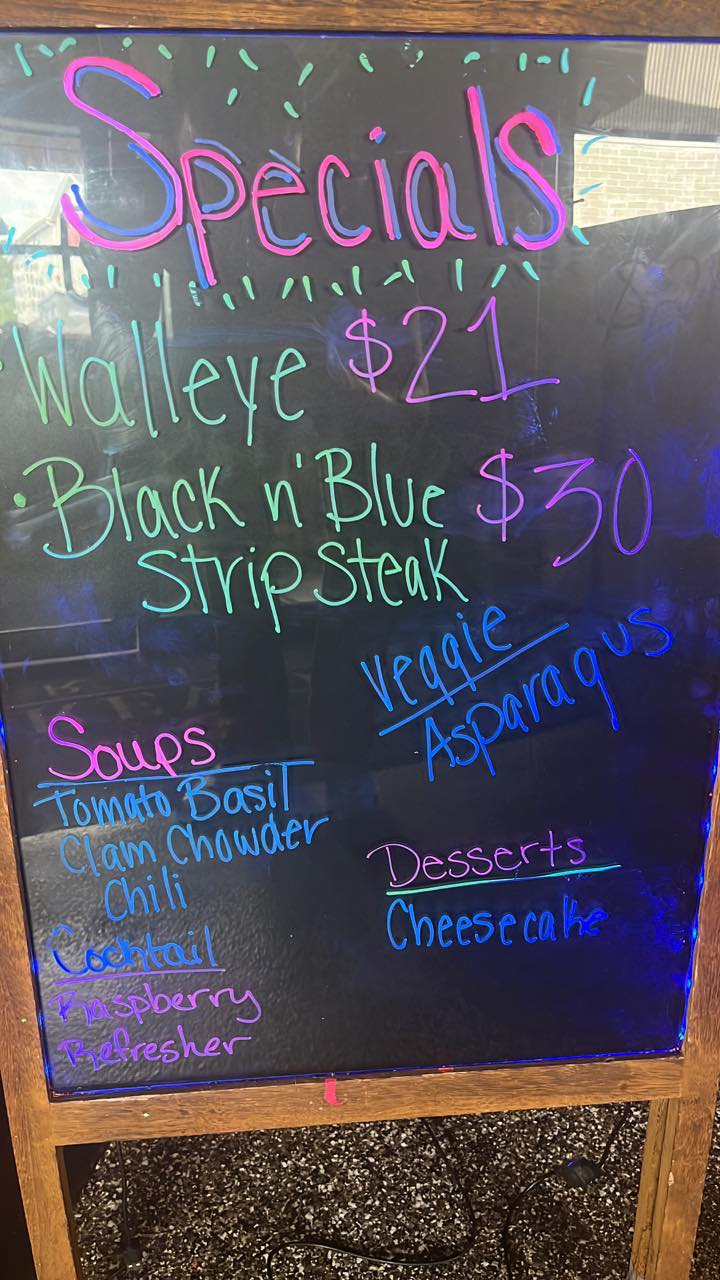 Specials
• Walleye $21
• Black n' Blue $30
Strip Steak
Veggie
Asparagus
Soups
Tomato Basil
Clam Chowder
Chili
Desserts
Cheesecake
Cocktail
Raspberry
Refresher